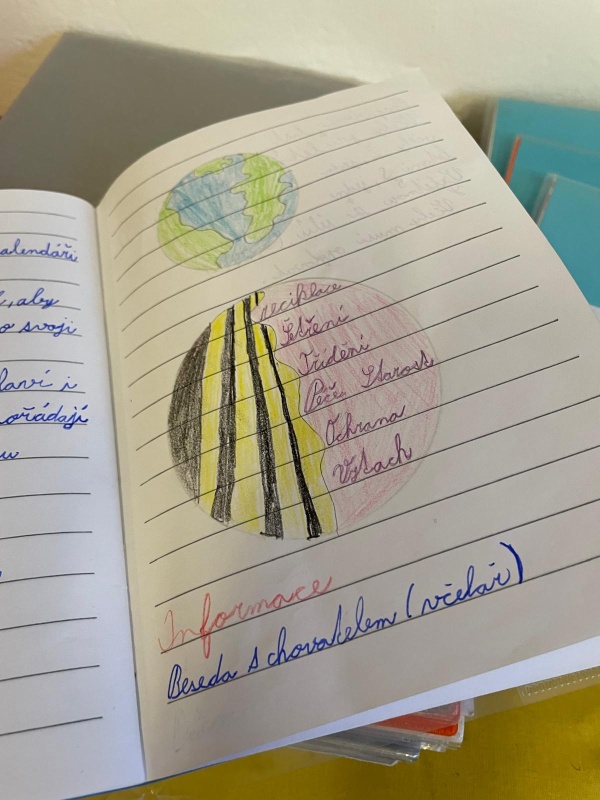 alendáři
, aby
o svoji
laví i
ořádají
u
reciklace
Šetření
Třídění
Péče, Starost
Ochrana
Vztach
Informace
Beseda s chovatelem (včelař)